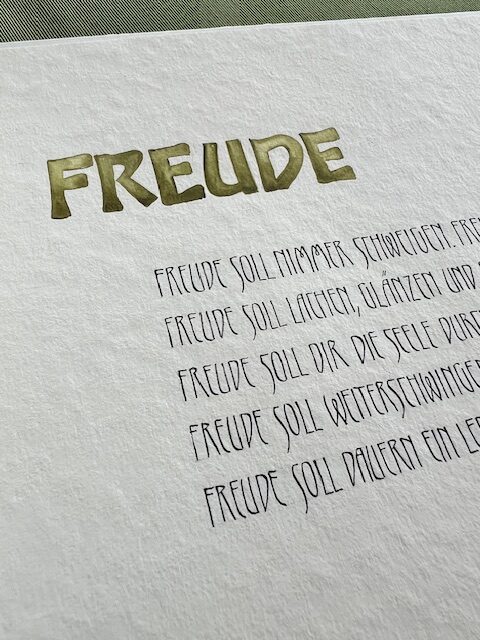 FREUDE
FREUDE SOLL NIMMER SCHWEIGEN. FREU
FREUDE SOLL LACHEN, GLÄNZEN UND
FREUDE SOLL DIR DIE SEELE DURC
FREUDE SOLL WEITERSCHWINGEN
FREUDE SOLL DAUERN EIN LEB